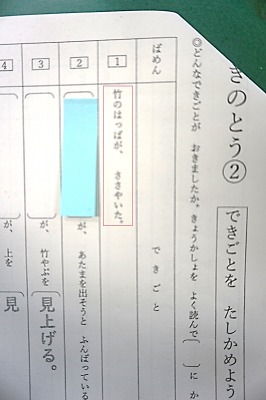 きのとう②
できごとを たしかめよう
◎どんなできごとが おきましたか。きょうかしょを よく読んで〔 〕に か
ばめん できごと
1 竹のはっぱが、 ささやいた。
2 が、 あたまを出そうと ふんばっている
3 が、 竹やぶを 見上げる。
4 が、 上を 見